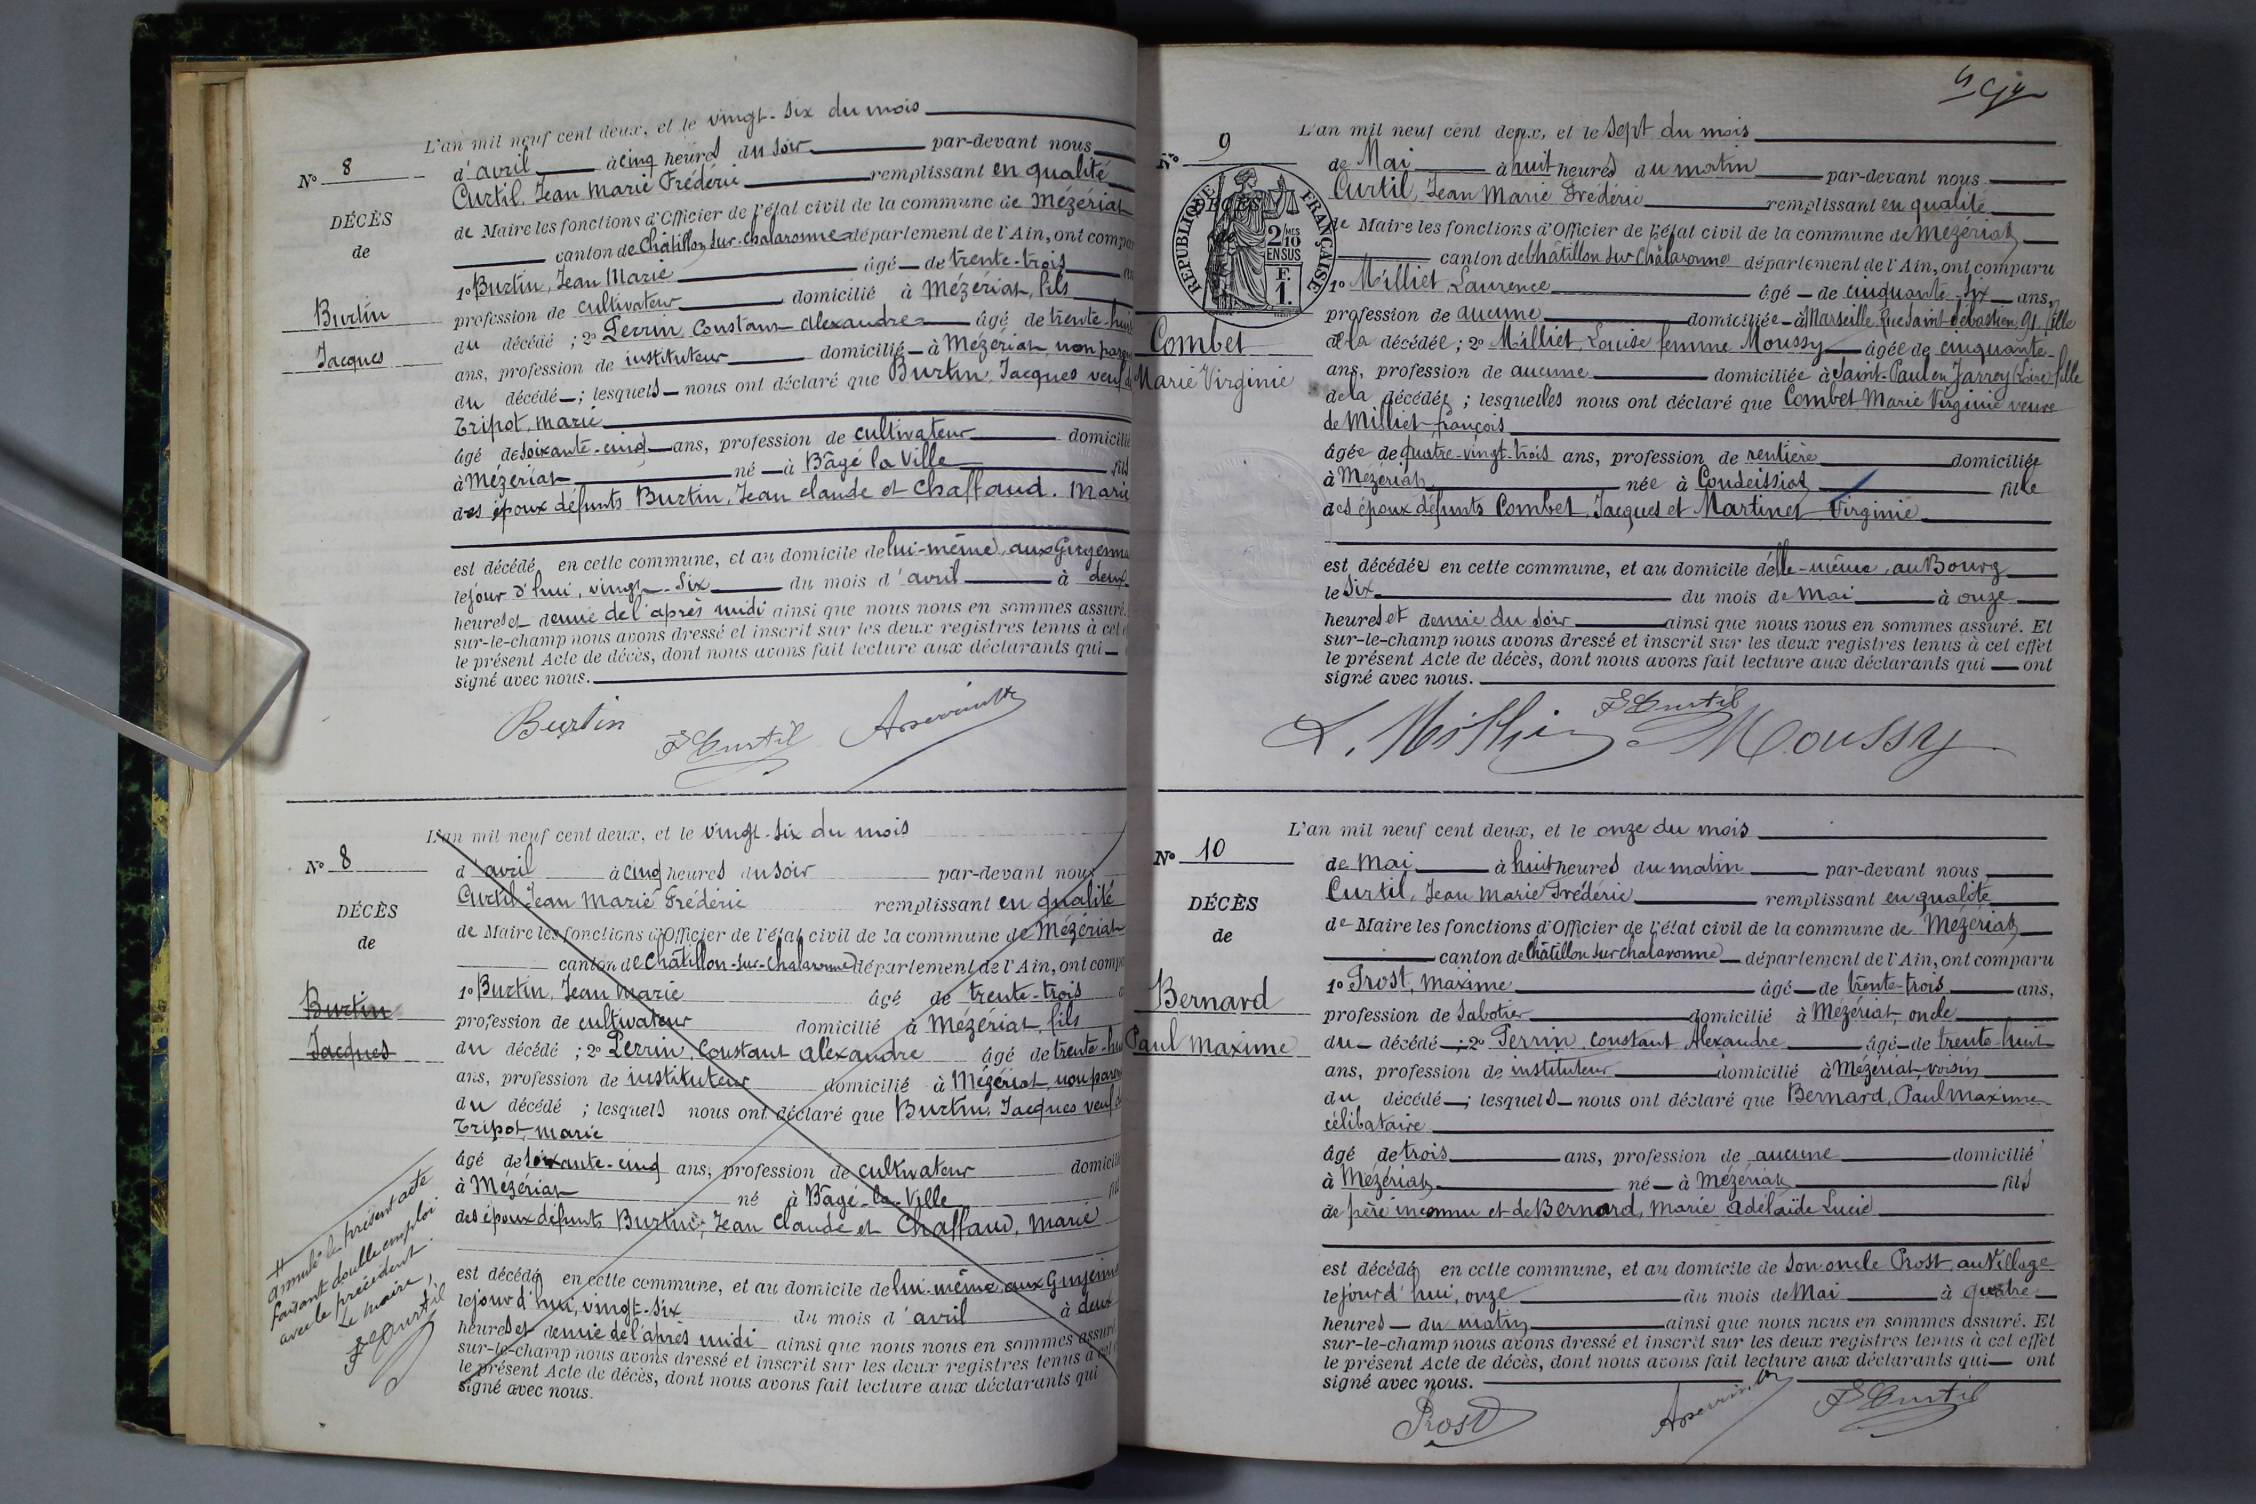 L'an mil neuf cent deux, et le vingt-six du mois
N° 8
d'avril à cinq heures du soir par-devant nous
Curtil, Jean Marie Frédéric remplissant en qualité
DÉCÈS
de Maire les fonctions d'Officier de l'état civil de la commune de Mézériat
de
canton de Châtillon-sur-Chalaronne département de l'Ain, ont compa
1° Burtin, Jean Marie âgé de trente-trois
Burtin
profession de cultivateur domicilié à Mézériat, fils
Jacques
du décédé ; 2° Perrin, Constant Alexandre âgé de trente-huit
ans, profession de instituteur domicilié à Mézériat, non paren
du décédé ; lesquels nous ont déclaré que Burtin, Jacques veuf de
Tripot, marie
âgé de soixante-cinq ans, profession de cultivateur domicilié
à Mézériat né à Bâgé la Ville fils
des époux défunts Burtin, Jean Claude et Chaffaud, Marie
est décédé en cette commune, et au domicile de lui-même, aux
le jour d'hui, vingt-six du mois d'avril à deux
heures et demie de l'après midi ainsi que nous nous en sommes assuré.
sur-le-champ nous avons dressé et inscrit sur les deux registres tenus à cet
le présent Acte de décès, dont nous avons fait lecture aux déclarants qui
signé avec nous.
Burtin
F Curtil
L'an mil neuf cent deux, et le vingt-six du mois
N° 8
d'avril à cinq heures du soir par-devant nous
Curtil Jean Marie Frédéric remplissant en qualité
DÉCÈS
de Maire les fonctions d'Officier de l'état civil de la commune de Mézériat
de
canton de Châtillon-sur-Chalaronne département de l'Ain, ont comp
Burtin
1° Burtin, Jean Marie âgé de trente-trois
profession de cultivateur domicilié à Mézériat, fils
Jacques
du décédé ; 2° Perrin, Constant Alexandre âgé de trente-hui
ans, profession de instituteur domicilié à Mézériat, non paren
du décédé ; lesquels nous ont déclaré que Burtin, Jacques veuf de
Tripot, marie
âgé de soixante-cinq ans, profession de cultivateur domicilié
à Mézériat né à Bâgé-la-Ville fils
des époux défunts Burtin, Jean Claude et Chaffaud, Marie
est décédé en cette commune, et au domicile de lui-même, aux
le jour d'hui, vingt-six du mois d'avril à deux
heures et demie de l'après midi ainsi que nous nous en sommes assuré
sur-le-champ nous avons dressé et inscrit sur les deux registres tenus à cet
le présent Acte de décès, dont nous avons fait lecture aux déclarants qui
signé avec nous.
annulé le présent acte
faisant double emploi
avec le précédent.
Le maire,
F Curtil
L'an mil neuf cent deux, et le sept du mois
N° 9
de Mai à huit heures du matin par-devant nous
Curtil, Jean Marie Frédéric remplissant en qualité
DÉCÈS
RÉPUBLIQUE FRANÇAISE
2/10 MES
EN SUS
F.
1.
de Maire les fonctions d'Officier de l'état civil de la commune de Mézériat
canton de Châtillon sur Chalaronne département de l'Ain, ont comparu
1° Milliet, Laurence âgé de cinquante-six ans,
profession de aucune domiciliée à Marseille, Rue Saint-Sébastien, 91, fille
Combet
de la décédée ; 2° Milliet, Louise femme Moussy âgée de cinquante-
Marie Virginie
ans, profession de aucune domiciliée à Saint-Paul en Jarrey (Loire) fille
de la décédée ; lesquelles nous ont déclaré que Combet Marie Virginie veuve
de Milliet françois
âgée de quatre-vingt-trois ans, profession de rentière domiciliée
à Mézériat née à Condeissiat fille
des époux défunts Combet, Jacques et Martinet Virginie
est décédée en cette commune, et au domicile d'elle-même, au Bourg
le six du mois de Mai à onze
heures et demie du soir ainsi que nous nous en sommes assuré. Et
sur-le-champ nous avons dressé et inscrit sur les deux registres tenus à cet effet
le présent Acte de décès, dont nous avons fait lecture aux déclarants qui ont
signé avec nous.
F Curtil
Moussy
L'an mil neuf cent deux, et le onze du mois
N° 10
de Mai à huit heures du matin par-devant nous
Curtil, Jean Marie Frédéric remplissant en qualité
DÉCÈS
de Maire les fonctions d'Officier de l'état civil de la commune de Mézériat
de
canton de Châtillon sur Chalaronne département de l'Ain, ont comparu
Bernard
1° Prost, Maxime âgé de trente-trois ans,
profession de Sabotier domicilié à Mézériat, oncle
Paul Maxime
du décédé ; 2° Perrin, Constant Alexandre âgé de trente-huit
ans, profession de instituteur domicilié à Mézériat, voisin
du décédé ; lesquels nous ont déclaré que Bernard, Paul Maxime
célibataire
âgé de trois ans, profession de aucune domicilié
à Mézériat né à Mézériat fils
de père inconnu et de Bernard, Marie Adélaïde Lucie
est décédé en cette commune, et au domicile de son oncle Prost, au Village
le jour d'hui, onze du mois de Mai à quatre
heures du matin ainsi que nous nous en sommes assuré. Et
sur-le-champ nous avons dressé et inscrit sur les deux registres tenus à cet effet
le présent Acte de décès, dont nous avons fait lecture aux déclarants qui ont
signé avec nous.
Prost
F Curtil